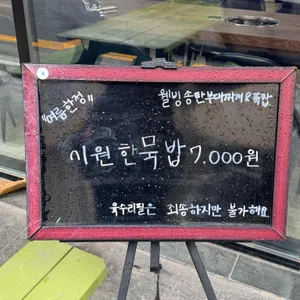 웰빙송탄부대찌개&족발
"여름한정"
시원한묵밥7.000원
육수리필은 죄송하지만 불가해요.